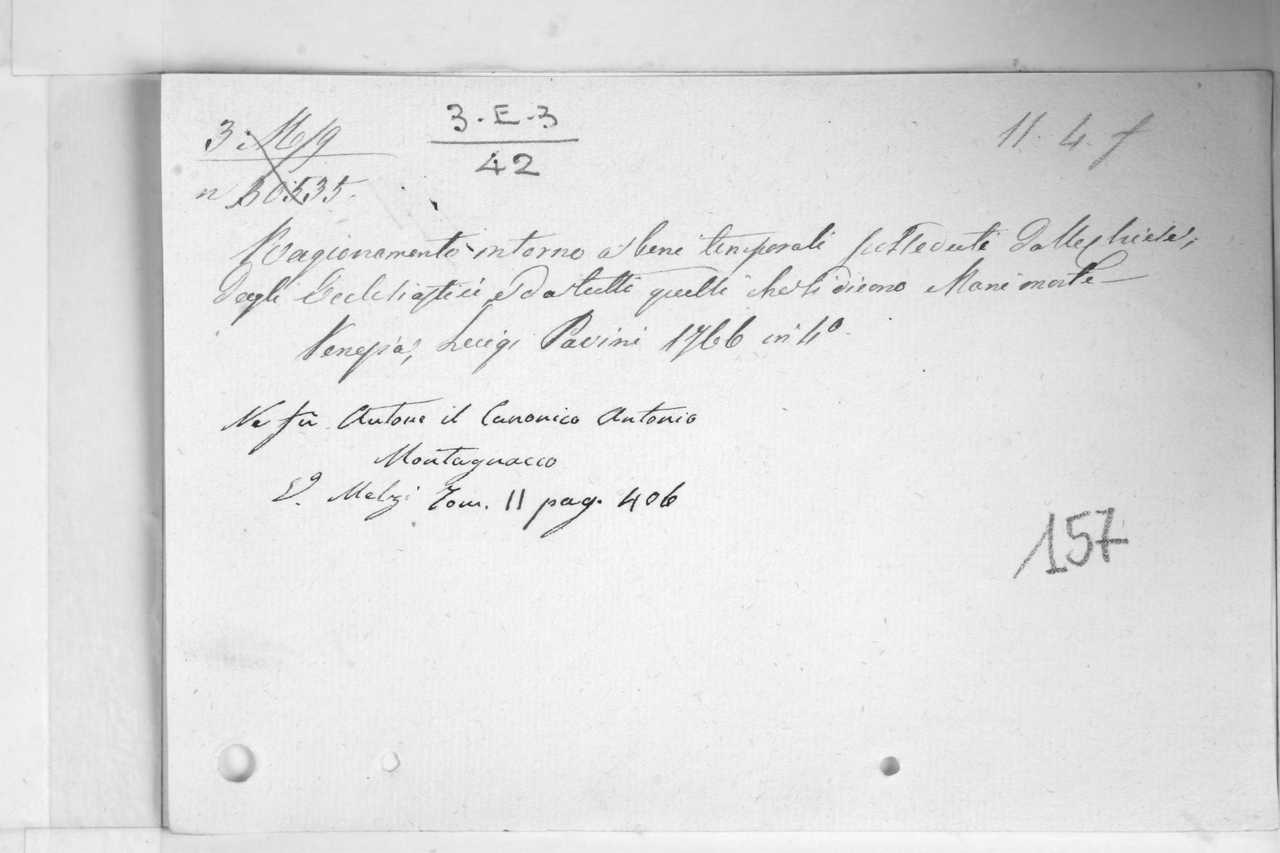 3. E. 3
42
11. 4. f
n 30535.
Ragionamento intorno a' beni temporali posseduti dalle chiese,
dagli Ecclesiastici e da tutti quelli che si dicono Mani morte
Venezia, Luigi Pavini 1766 in 4º.
Ne fu Autore il Canonico Antonio
Montagnacco
Vº. Melzi Tom. II pag. 406
157